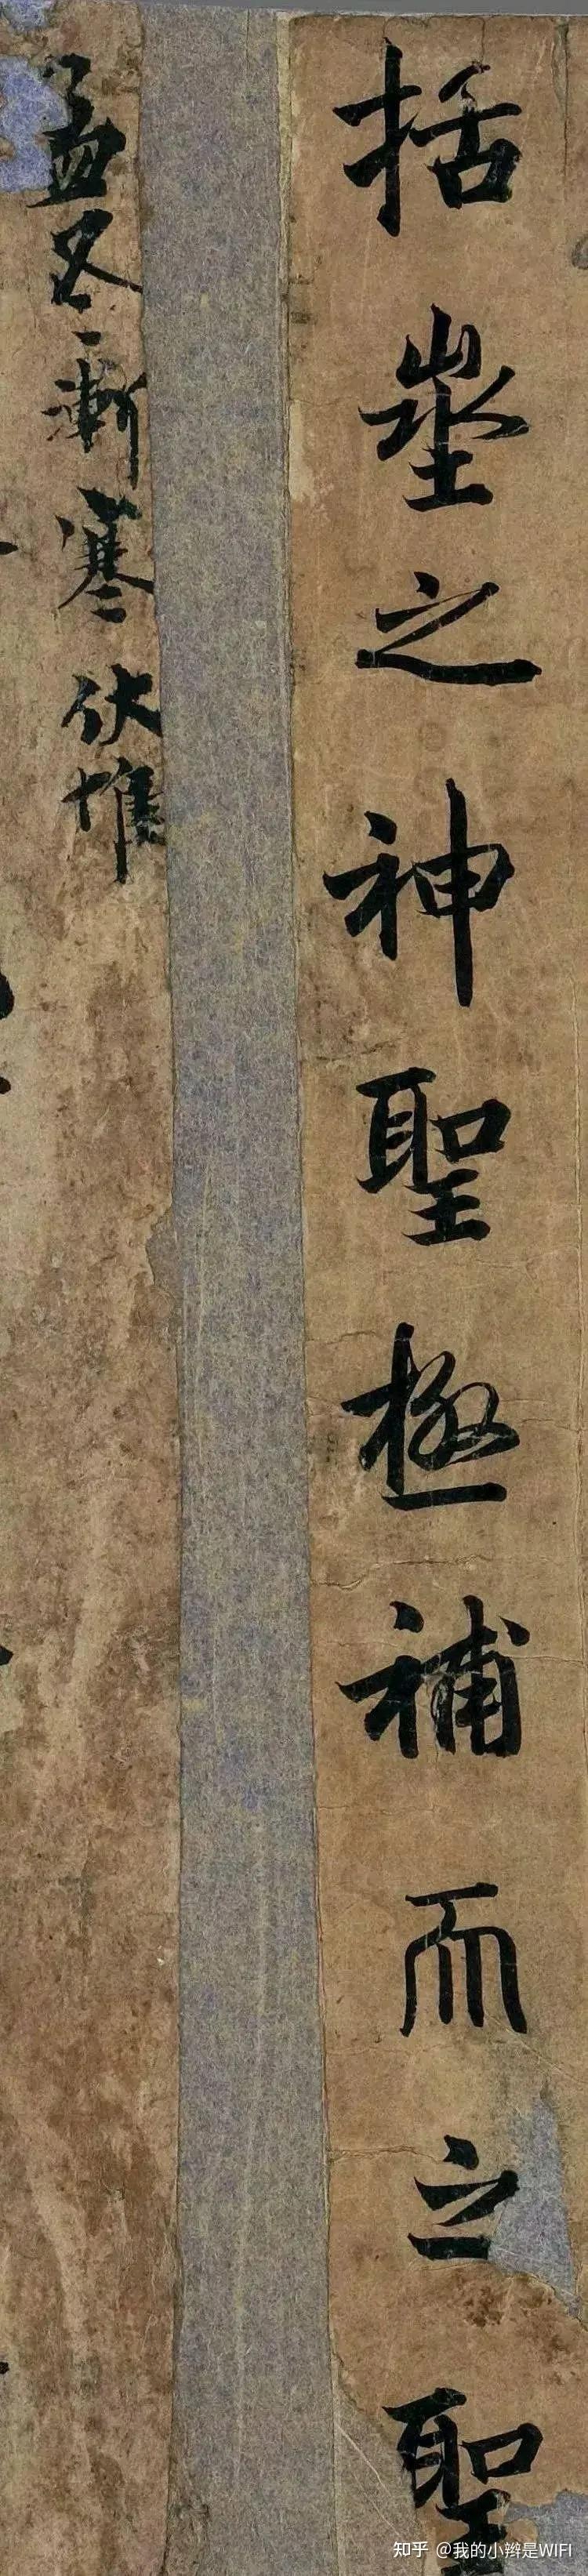 括埊之神聖極補而之聖
孟冬漸寒伏惟
知乎 @我的小辫是WIFI